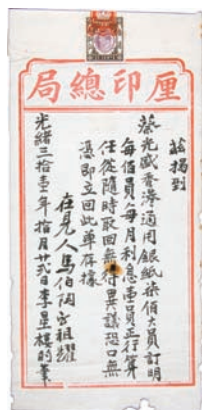 厘印總局
茲揭到
蔡光盛香港通用銀紙柒佰大員訂明
每佰員每月利息壹員正行算
任從隨時取回無得異議恐口無
憑即立回此單存據
在見人馬伯閑方祖耀
光緒三拾壹年拾月廿弍日李星樓的筆